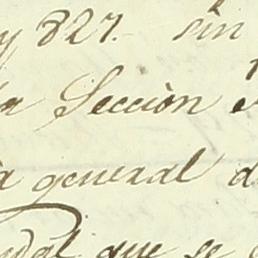 y 827. sin
Sección
general d
que se